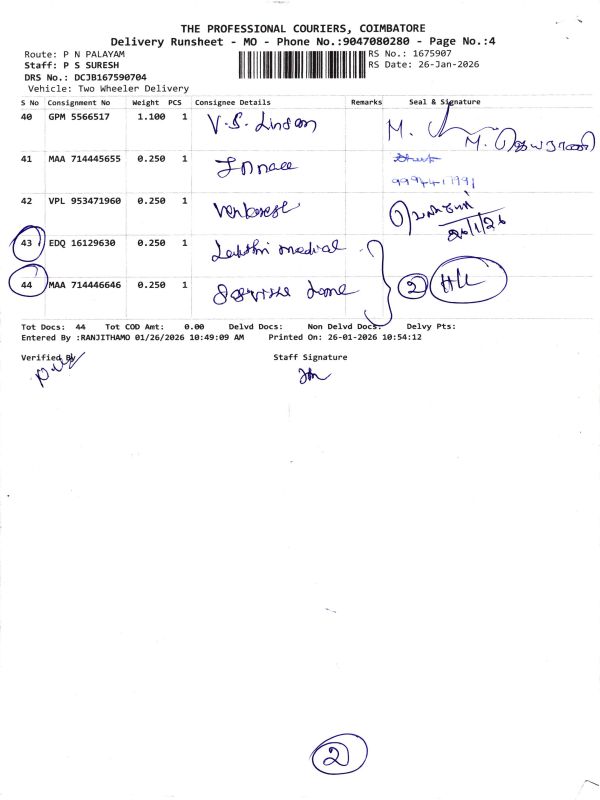 THE PROFESSIONAL COURIERS, COIMBATORE
Delivery Runsheet - MO - Phone No.:9047080280 - Page No.:4
Route: P N PALAYAM
RS No.: 1675907
Staff: P S SURESH
RS Date: 26-Jan-2026
DRS No.: DCJB167590704
Vehicle: Two Wheeler Delivery
S No Consignment No Weight PCS Consignee Details Remarks Seal & Signature
40 GPM 5566517 1.100 1 V.S. M. M.
41 MAA 714445655 0.250 1
42 VPL 953471960 0.250 1 26/1/26
43 EDQ 16129630 0.250 1 medical
44 MAA 714446646 0.250 1 2
Tot Docs: 44 Tot COD Amt: 0.00 Delvd Docs: Non Delvd Docs: Delvy Pts:
Entered By :RANJITHAMO 01/26/2026 10:49:09 AM Printed On: 26-01-2026 10:54:12
Verified By Staff Signature
2